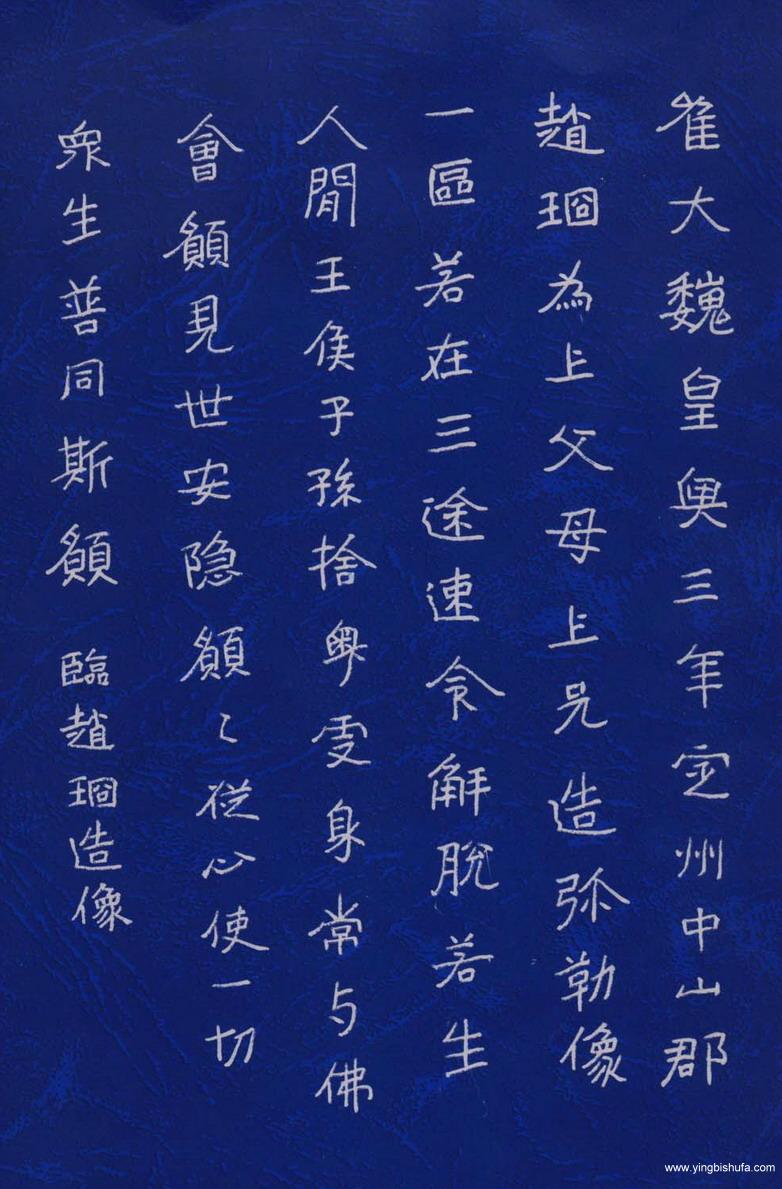 隹大魏皇興三年定州中山郡
趙珚為上父母上兄造弥勒像
一區若在三途速令解脫若生
人間王侯子孫捨身受身常与佛
會願見世安隐願〻従心使一切
衆生普同斯願 臨趙珚造像
www.yingbishufa.com